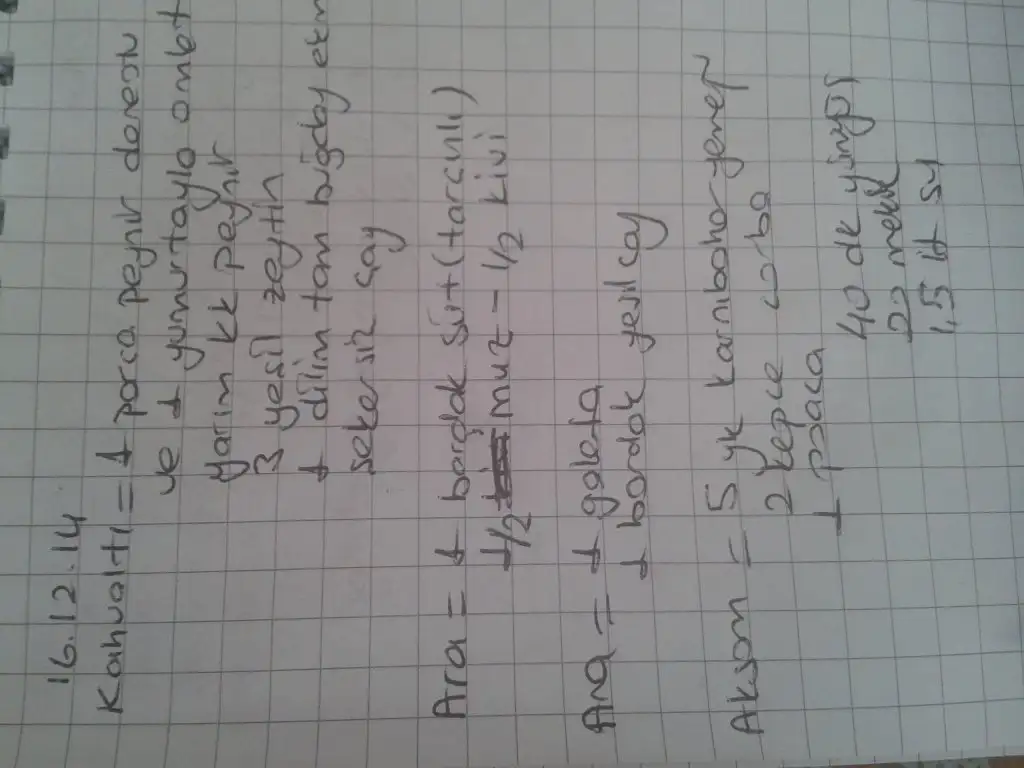 16.12.14
Kahvaltı = 1 parça peynir dereotu
ve 1 yumurtayla omlet
Yarım kk peynir
3 yeşil zeytin
1 dilim tam buğday
şekersiz çay
Ara = 1 bardak süt (tarçınlı)
1/2 muz - 1/2 kivi
Ara = 1 galeta
1 bardak yeşil çay
Akşam = 5 yk karnıbahar yemeği
2 kepçe çorba
1 paça
40 dk yürüyüş
20 mekik
1,5 lt su